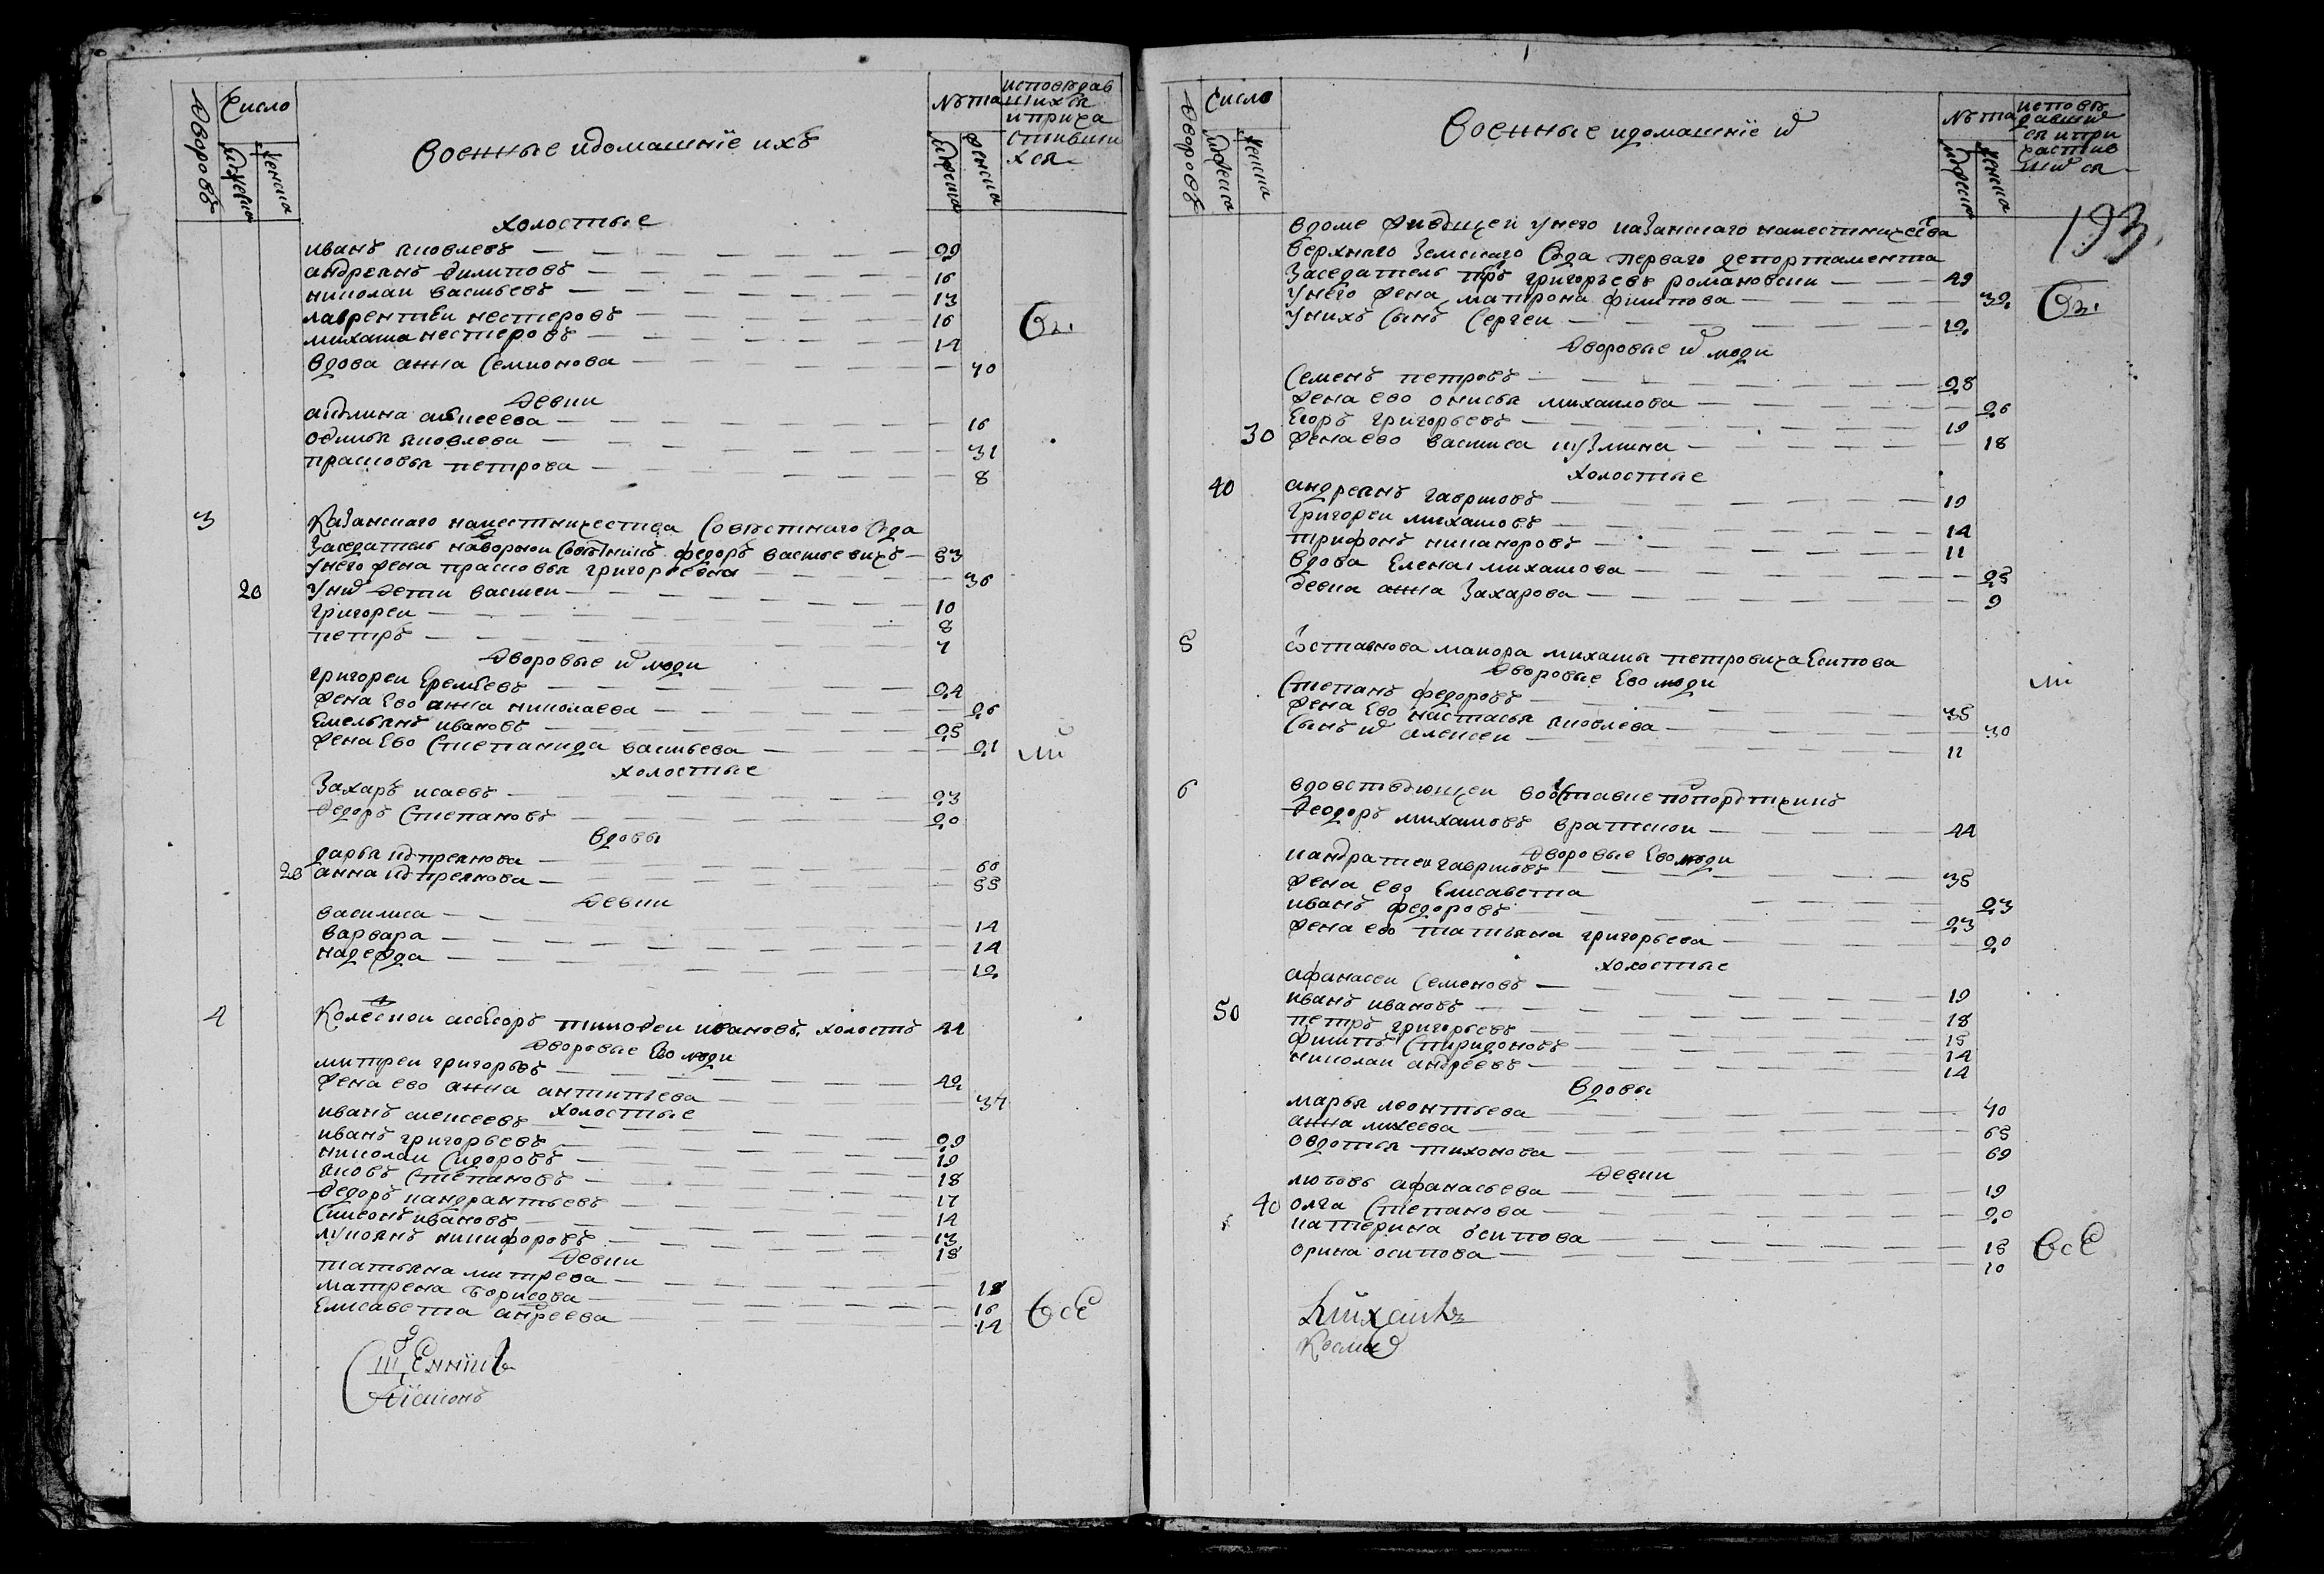 Дворовъ
Число
мужеска
женска
Военные идомашнïе ихъ
Лѣта
мужеска
женска
исповѣдав
шихся
иприча
стивши
хся
холостые
иванъ яковлевъ 29
андреянъ Филиповъ 16
николаи васильевъ 13
лаврентеи нестеровъ 16
михаила нестеровъ 14
вдова анна Семионова 40
девки
акулина алексеева 16
офимья яковлева 31
прасковья петрова 8
3 Казанскаго наместничества Совѣстнаго Суда
Заседатель надворнои Советникъ федоръ васильевичъ 53
унего жена прасковья григорьевна 36
20 уних дети василеи 10
григореи 8
петръ 7
Дворовые их люди
григореи Еремѣевъ 24
жена Ево анна николаева 26
Емельянъ ивановъ 25
жена Ево Степанида васильева 21
холостые
Захаръ исаевъ 23
Федоръ Степановъ 20
вдовы
дарья купреянова 60
20 анна купреянова 55
Девки
василиса 14
варвара 14
надежда 12
4 Колескои асесоръ тимофеи ивановъ холостъ 44
Дворовые Ево люди
митреи григорьевъ 42
жена ево анна антипьева 37
холостые
иванъ алексеевъ 29
иванъ григорьевъ 19
николаи Сидоровъ 18
яковъ Степановъ 17
Федоръ кандрантьевъ 14
Симеонъ ивановъ 13
лукоянъ никифоровъ 18
Девки
татьяна митрева 18
матрена борисова 16
Елисавета андреева 14
всѣ
Дворовъ
Число
мужеска
женска
Военные идомашнïе их
Лѣта
мужеска
женска
исповѣ
давших
ся ипри
частив
ших ся
193
вдоме живущеи унего казанскаго наместничества
верхняго Земскаго Суда перваго депортамента
Заседатель петръ григорьевъ романовскии 49
унего жена матрона филипова 32
унихъ Сынъ Сергеи 12
Дворовые их люди
Семенъ петровъ 28
жена ево онисья михаилова 26
Егоръ григорьевъ 19
30 жена ево василиса кузмина 18
холостые
40 андреянъ гавриловъ 19
григореи михаиловъ 14
трифонъ никаноровъ 11
вдова Елена михаилова 25
девка анна Захарова 9
5 Отставнова маиора михаилы петровича Есипова
Дворовые Ево люди
Степанъ федоровъ 35
жена Ево настасья яковлева 30
Сынъ их алексеи 11
6 вдовствующеи воотставке попорутчикъ
Феодоръ михаиловъ братскои 44
Дворовые Ево люди
кандратеи гавриловъ 35
жена ево Елисавета 23
иванъ федоровъ 23
жена ево татьяна григорьева 20
холостые
афанасеи Семеновъ 19
50 иванъ ивановъ 18
петръ григорьевъ 15
филипъ Спиридоновъ 14
николаи андреевъ 14
Вдовы
марья леонтьева 40
анна михеева 65
овдотья тихонова 69
Девки
любовь афанасьева 19
40 олга Степанова 20
катерина осипова 15
орина осипова 10
всѣ